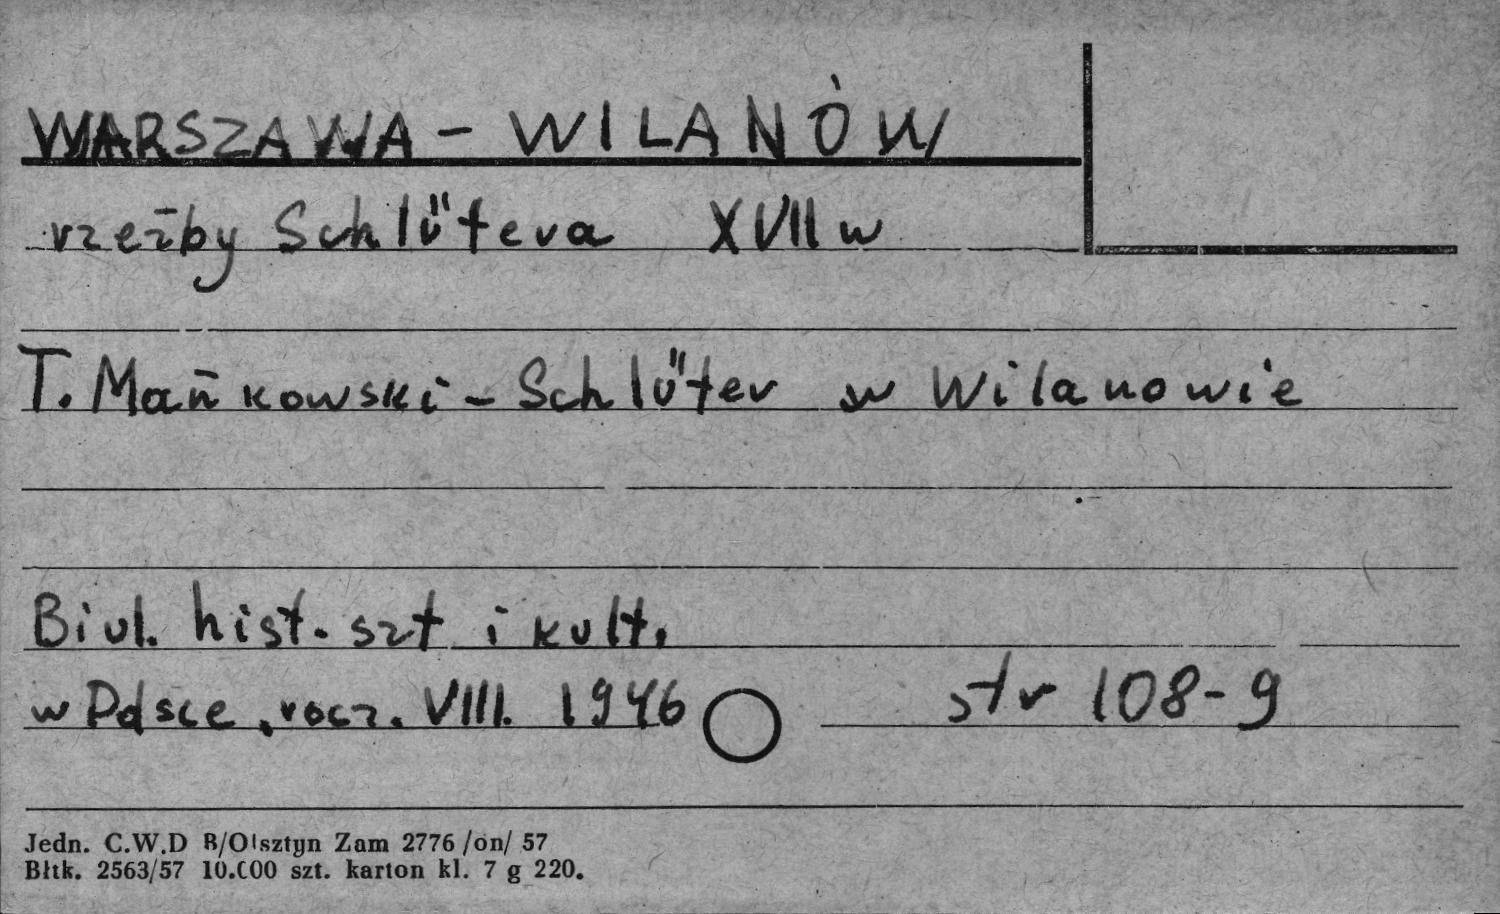 WARSZAWA - WILANÓW
rzeźby Schlütera XVII w
T. Mańkowski - Schlüter w Wilanowie
Biul. hist. szt i kult.
w Polsce, rocz. VIII. 1946 str 108-9
Jedn. C.W.D B/Olsztyn Zam 2776 /on/ 57
Błtk. 2563/57 10.000 szt. karton kl. 7 g 220.